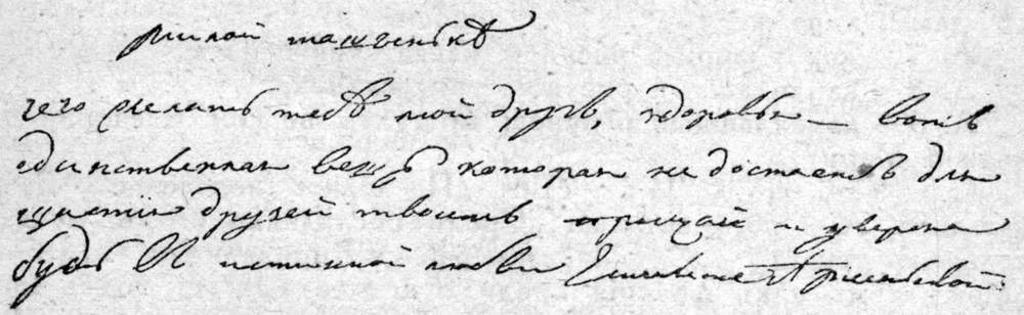 милой машенькѣ
чего желать тебѣ мой другъ, здоровья — вотъ
единственная вещь которая не достаетъ для
щастія друзей твоихъ прощай и уверена
будь в истинной любви